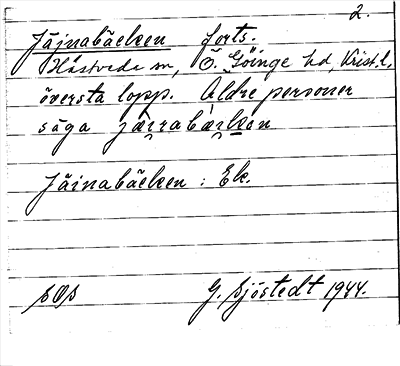 2.
Jäjnabäcken forts.
Hästveda sn, Ö. Göinge hd, Krist.l,
översta lopp. Äldre personer
säga jærrabærken
Jäinabäcken : Ek.
SOS
G. Sjöstedt 1944.